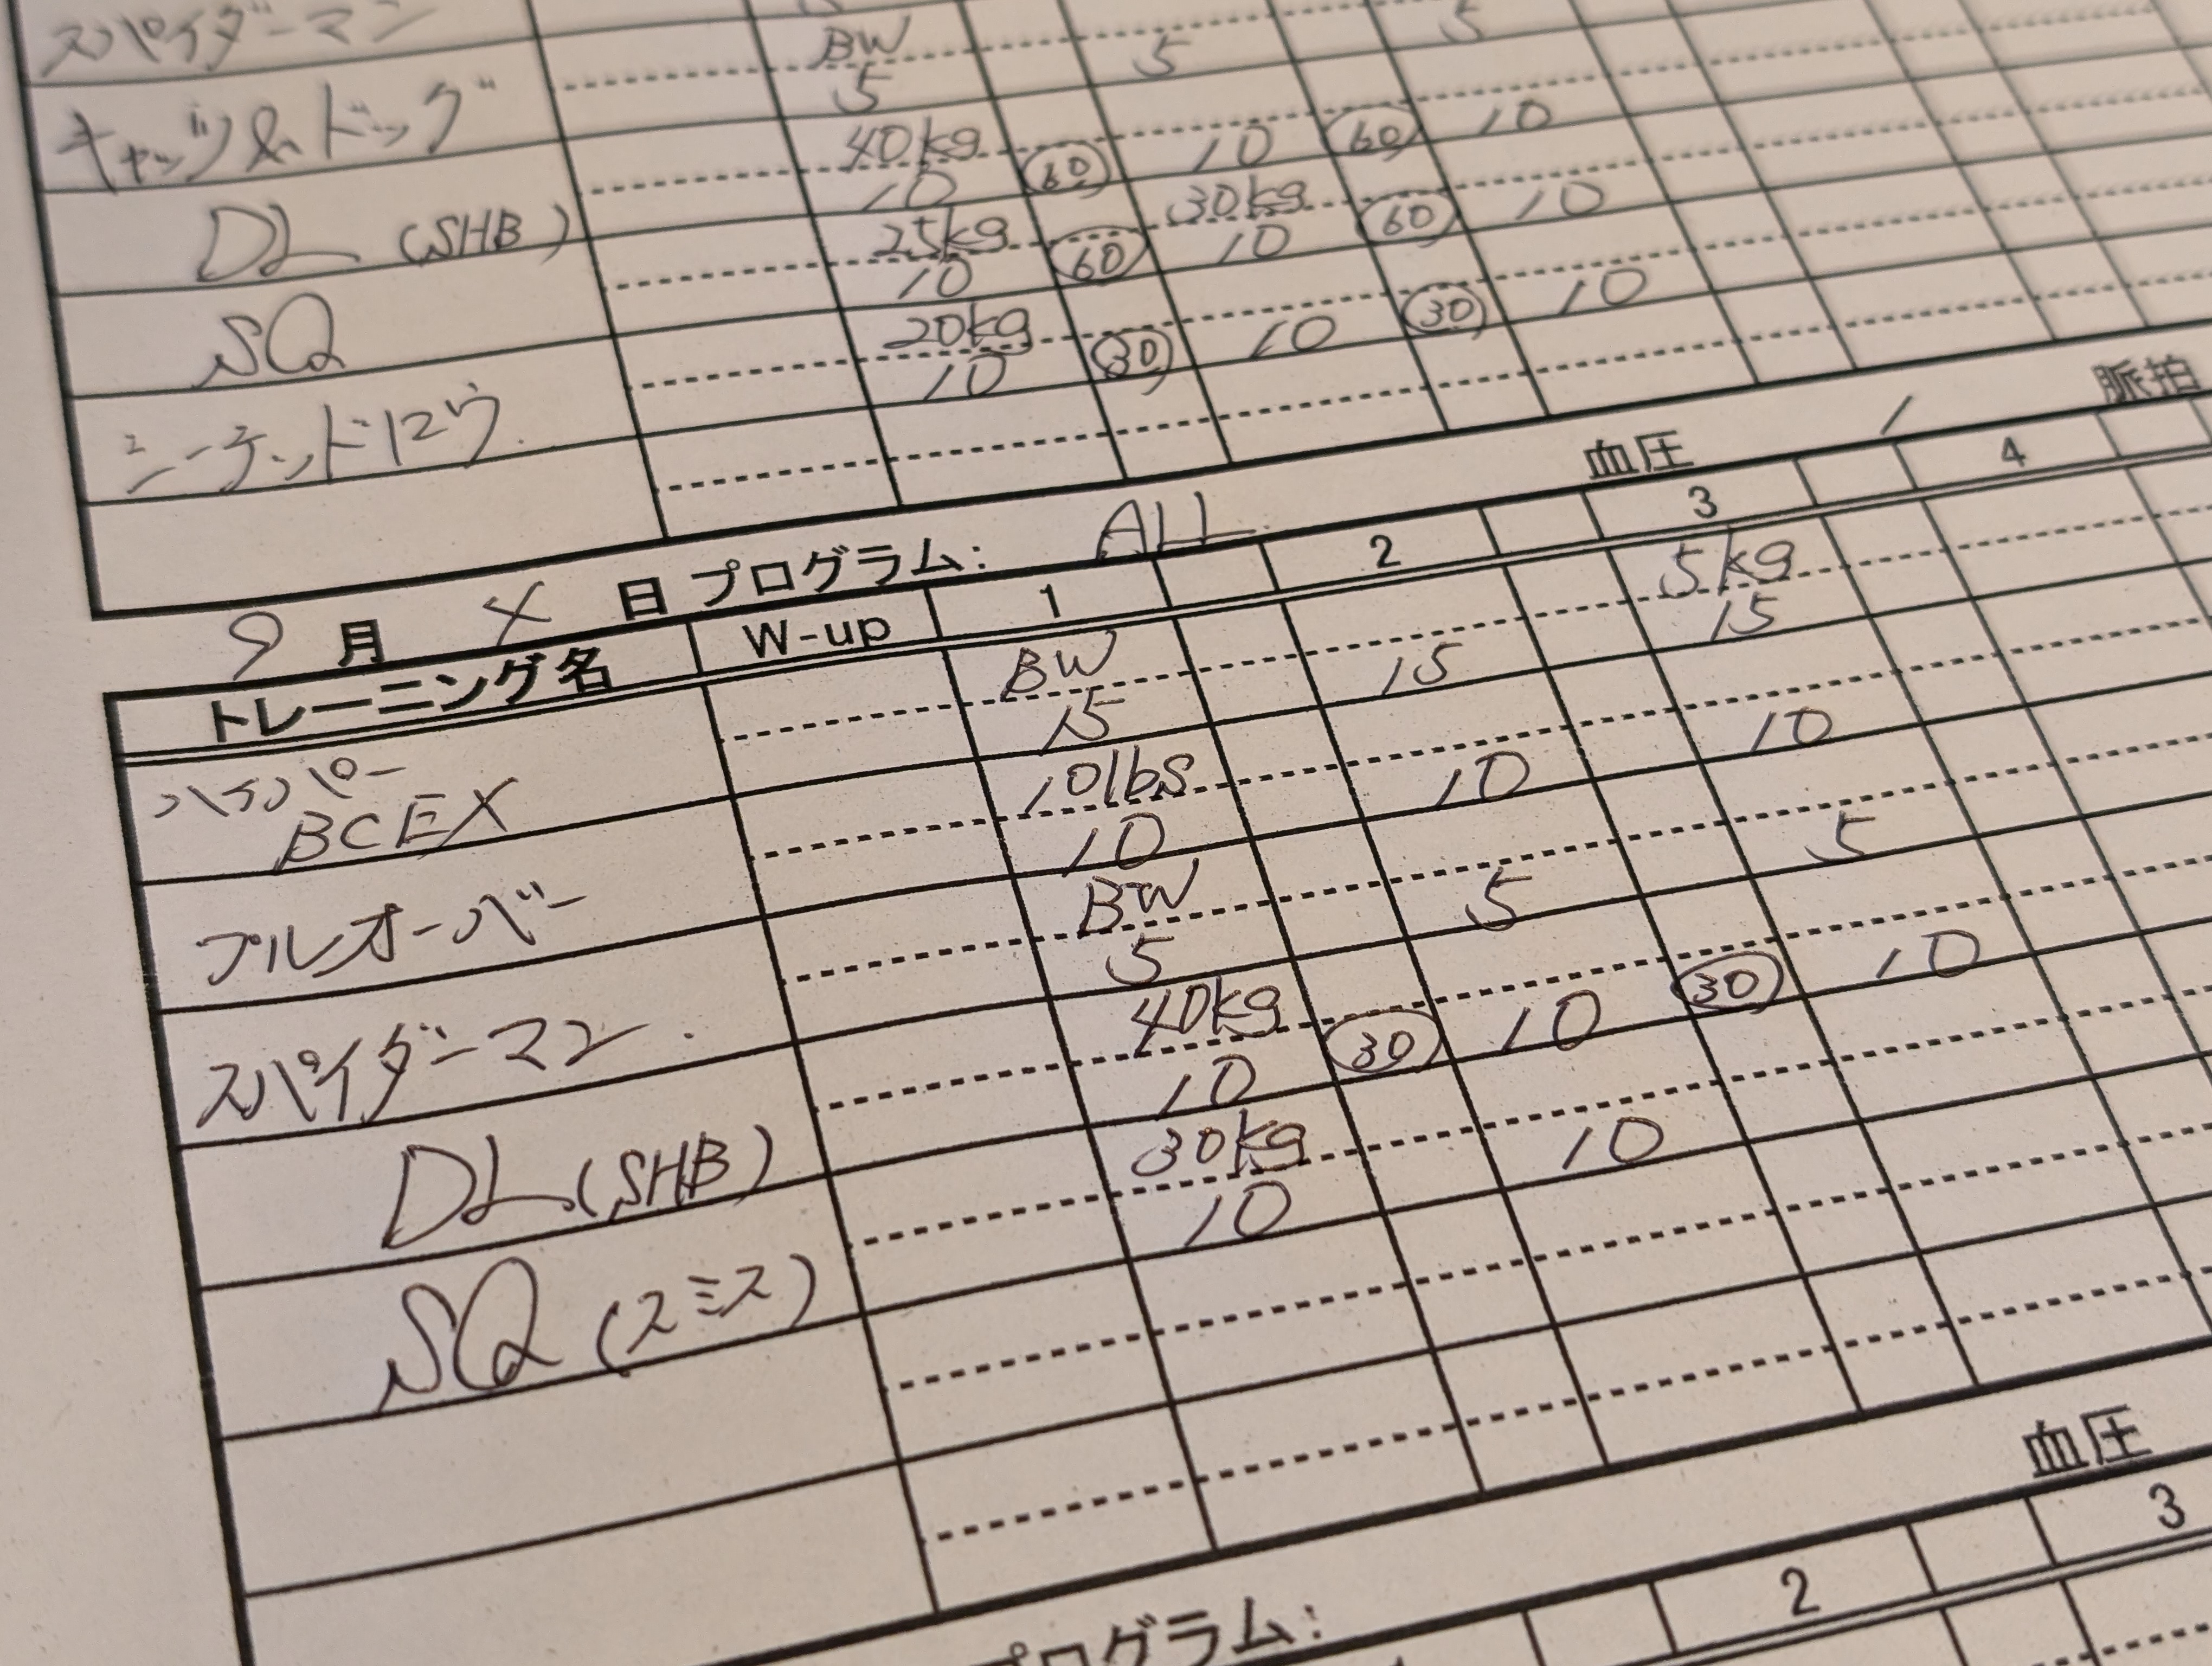 スパイダーマン BW 5 5
キャッツ&ドッグ 5
DL (SHB) 40kg 10 60 10 60 10
SQ 25kg 10 60 30kg 10 60 10
シーテッドロウ 20kg 10 30 10 30 10
9月 X 日 プログラム: ALL 血圧 / 脈拍
トレーニング名 W-up 1 2 3 4
ハイパー
BCEX BW 15 15 5kg 15
プルオーバー 10lbs 10 10 10
スパイダーマン BW 5 5 5
DL(SHB) 40kg 10 30 10 30 10
SQ(スミス) 30kg 10 10
プログラム: 血圧
2 3